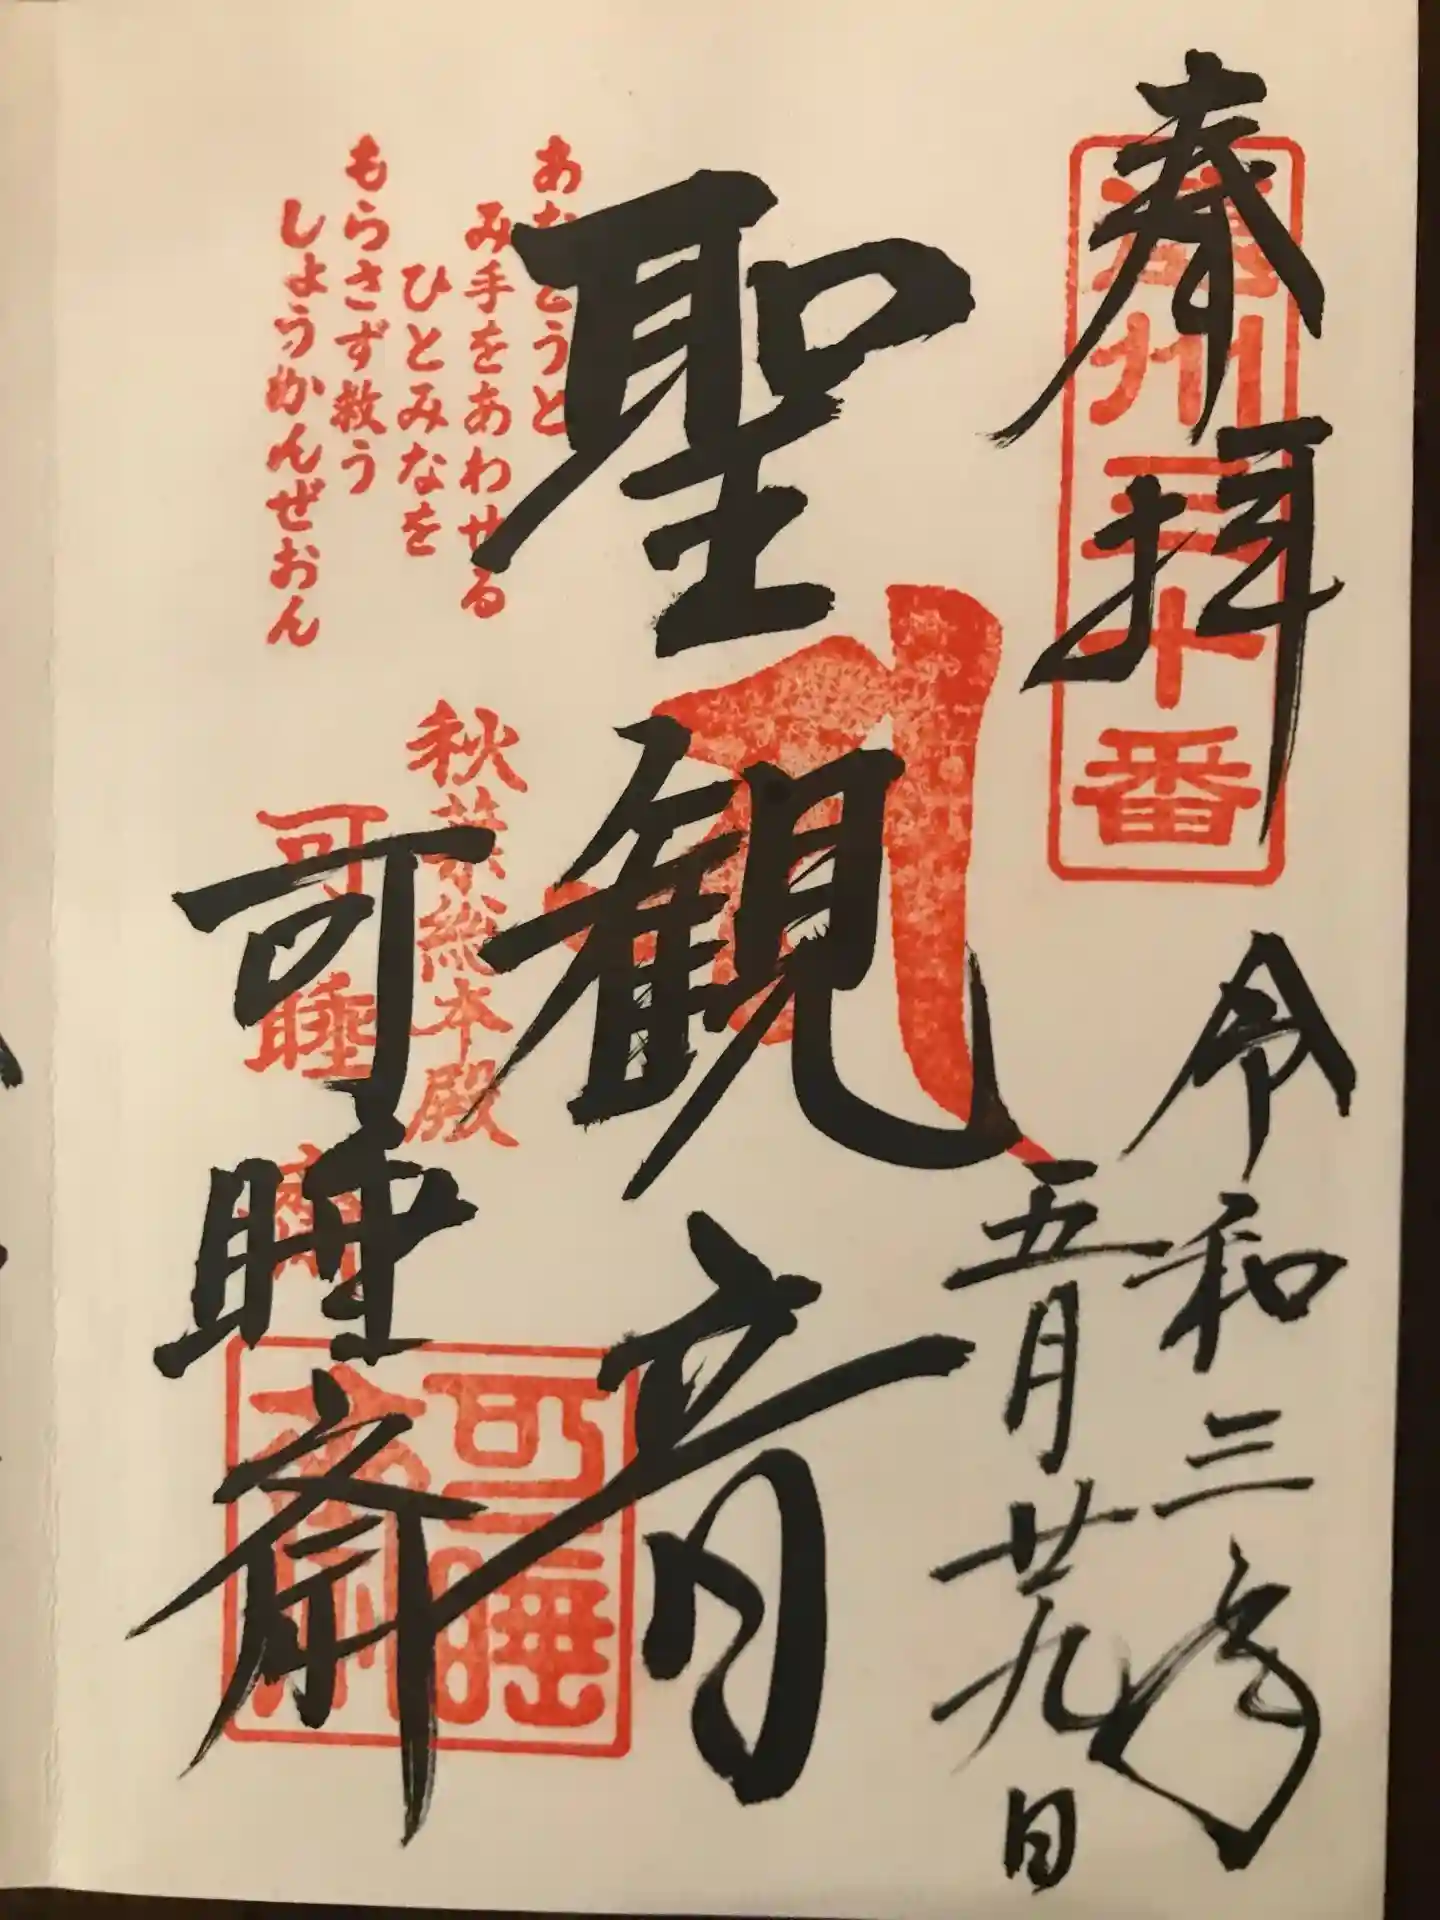 奉拝
遠州三十番
令和三年
五月廿九日
聖観音
あなとうと
み手をあわせる
ひとみなを
もらさず救う
しょうかんぜおん
秋葉総本殿
可睡齋
可睡斎
可睡